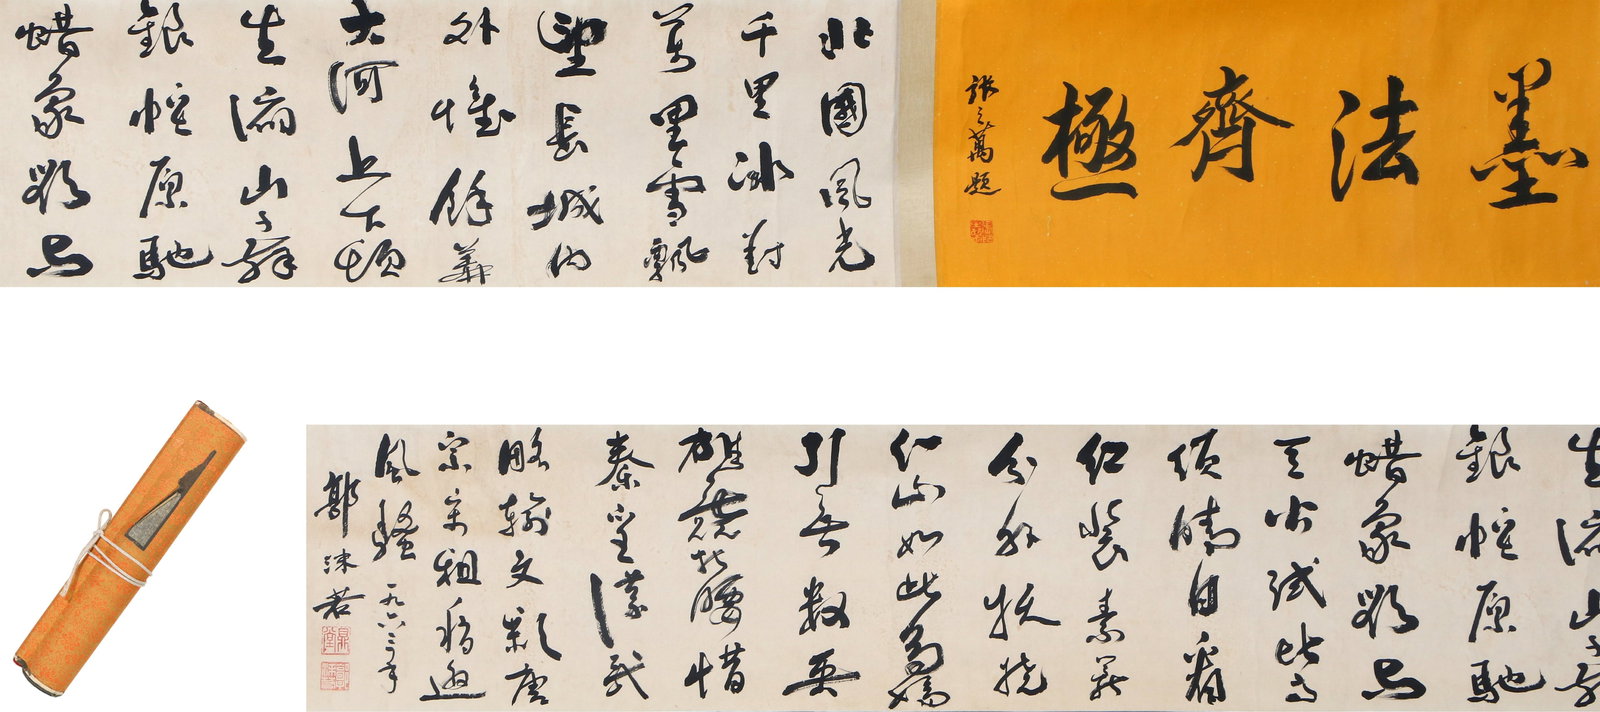 墨法齊極
張之萬題
北國風光
千里冰封
萬里雪飄
望長城內
外惟餘莽
大河上下頓
失滔山々舞
銀蛇原馳
蠟象欲與
失滔山々舞
銀蛇原馳
蠟象欲與
天公試比高
須晴日看
紅裝素裹
分外妖嬈
江山如此多嬌
引無數英
雄競折腰惜
秦皇漢武
略輸文彩唐
宗宋祖稍遜
風騷 一九六三年
郭沫若